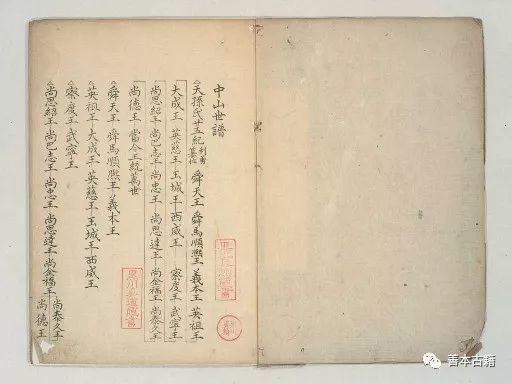 中山世譜
天孫氏廿五紀 利勇簒位 舜天王 舜馬順熙王 義本王 英祖王
大成王 英慈王 玉城王 西威王 察度王 武寧王
尚思紹王 尚巴志王 尚忠王 尚思達王 尚金福王 尚泰久王
尚德王 當今王統萬世
舜天王 舜馬順熙王 義本王
英祖王 大成王 英慈王 玉城王 西威王
察度王 武寧王
尚思紹王 尚巴志王 尚忠王 尚思達王 尚金福王 尚泰久王 尚德王
善本古籍